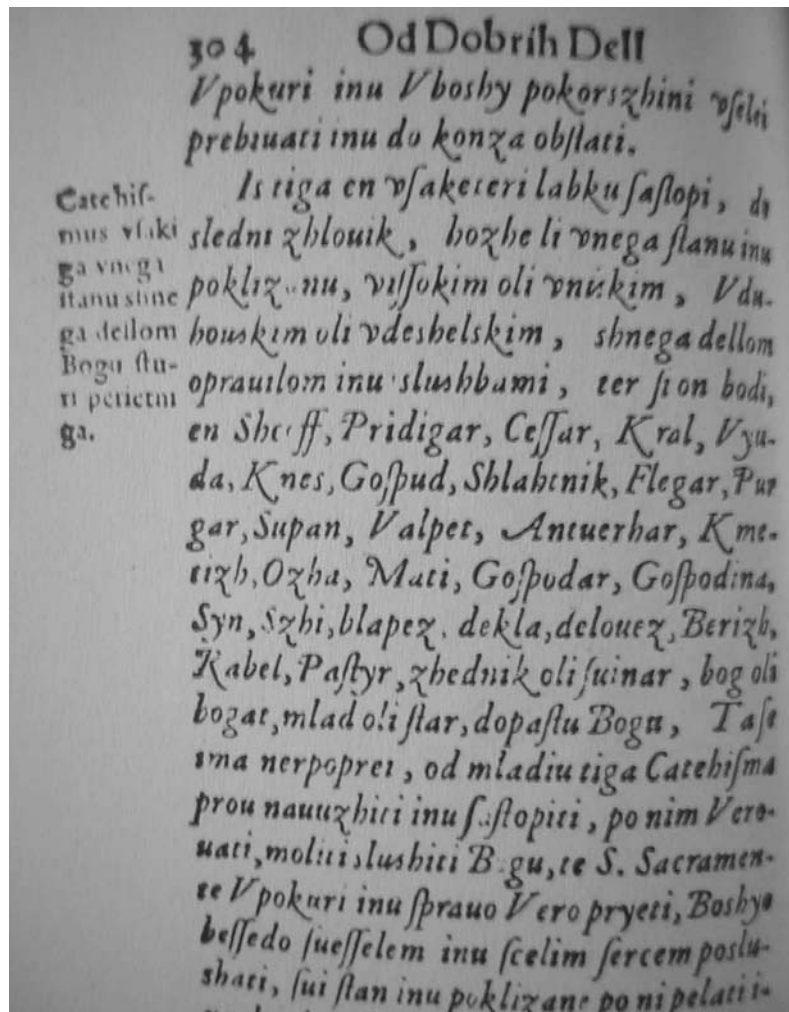 304 Od Dobrih Dell
Vpokuri inu Vboshy pokorszhini vſelei
prebiuati inu do konza obſtati.
Is tiga en vſaketeri lahku ſaſtopi, da
sledni zhlouik, hozhe li vnega ſtanu inu
vıſſokim oli vniskim, Vdu-
houskim oli vdeshelskim, shnega dellom
oprauilom inu slushbami, ter ſi on bodi,
en Pridigar, Ceſſar, Kral, Vyu-
da, Knes, Goſpud, Shlahtnik, Flegar, Pur
gar, Supan, Valpet, Antuerhar, Kme-
tizh, Ozha, Mati, Goſpodar, Goſpodina,
Syn, Szhi, hlapez, dekla, delouez, Berizh,
Rabel, Paſtyr, zhednik oli ſuinar, bog oli
bogat, mlad oli ſtar, dopaſtu Bogu, Taſt
ima nerpoprei, od mladiu tiga Catehiſma
prou nauuzhiti inu ſaſtopiti, po nim Vero-
uati, moliti slushiti Bogu, te S. Sacramen-
te Vpokuri inu ſprauo Vero pryeti, Boshyo
beſſedo ſueſſelem inu ſcelim ſercem poslu-
shati, ſui ſtan inu poklizane po ni pelati i-
Catehiſ-
mus vſaki
ga vnega
ſtanu shne
ga dellom
Bogu ſtu-
ri petietni
ga.